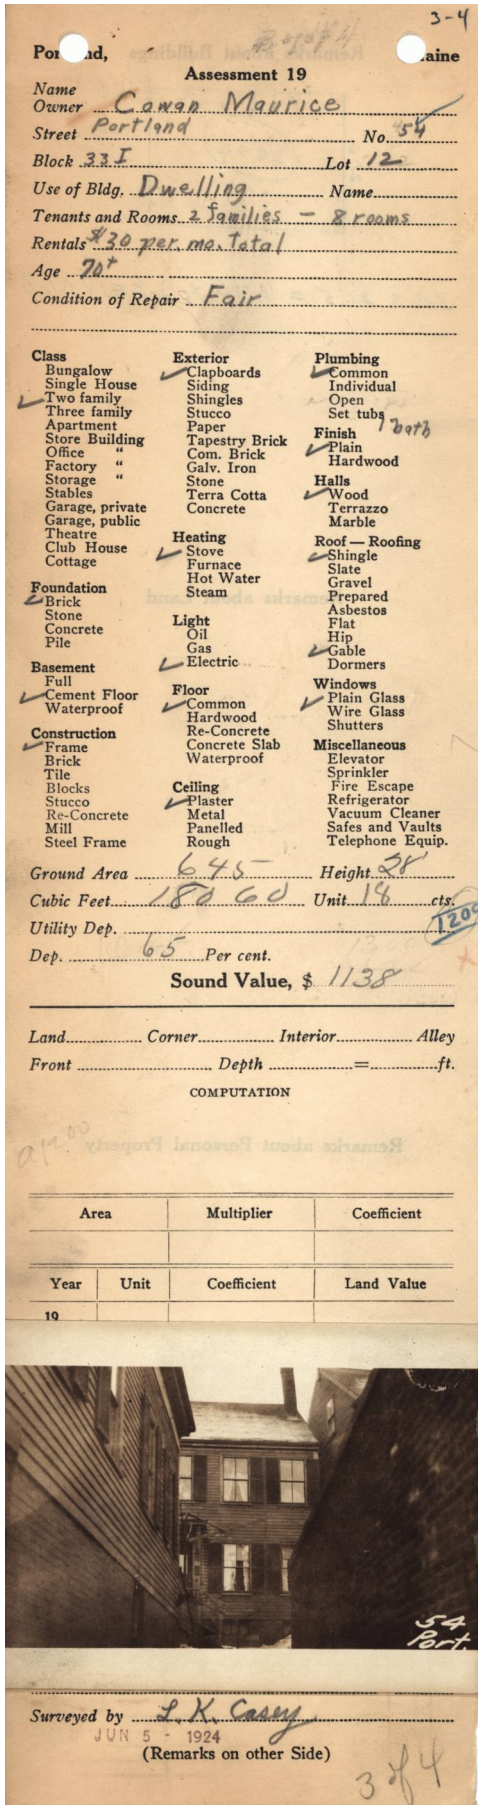 3-4
Portland, Maine
Assessment 19
Name
Owner Cowan Maurice
Street Portland No. 54
Block 33 I Lot 12
Use of Bldg. Dwelling Name
Tenants and Rooms 2 families - 8 rooms
Rentals $30 per. mo. total
Age 70+
Condition of Repair Fair
Class
Bungalow
Single House
Two family
Three family
Apartment
Store Building
Office "
Factory "
Storage "
Stables
Garage, private
Garage, public
Theatre
Club House
Cottage
Foundation
Brick
Stone
Concrete
Pile
Basement
Full
Cement Floor
Waterproof
Construction
Frame
Brick
Tile
Blocks
Stucco
Re-Concrete
Mill
Steel Frame
Exterior
Clapboards
Siding
Shingles
Stucco
Paper
Tapestry Brick
Com. Brick
Galv. Iron
Stone
Terra Cotta
Concrete
Heating
Stove
Furnace
Hot Water
Steam
Light
Oil
Gas
Electric
Floor
Common
Hardwood
Re-Concrete
Concrete Slab
Waterproof
Ceiling
Plaster
Metal
Panelled
Rough
Plumbing
Common
Individual
Open
Set tubs
1 bath
Finish
Plain
Hardwood
Halls
Wood
Terrazzo
Marble
Roof — Roofing
Shingle
Slate
Gravel
Prepared
Asbestos
Flat
Hip
Gable
Dormers
Windows
Plain Glass
Wire Glass
Shutters
Miscellaneous
Elevator
Sprinkler
Fire Escape
Refrigerator
Vacuum Cleaner
Safes and Vaults
Telephone Equip.
Ground Area 645 Height 28
Cubic Feet 18060 Unit 18 cts.
1200
Utility Dep.
Dep. 65 Per cent.
Sound Value, $ 1138
Land Corner Interior Alley
Front Depth = ft.
COMPUTATION
Remarks about Personal Property
Area Multiplier Coefficient
Year Unit Coefficient Land Value
19
54
Port.
Surveyed by L. K. Casey
JUN 5 - 1924
(Remarks on other Side)
3 of 4